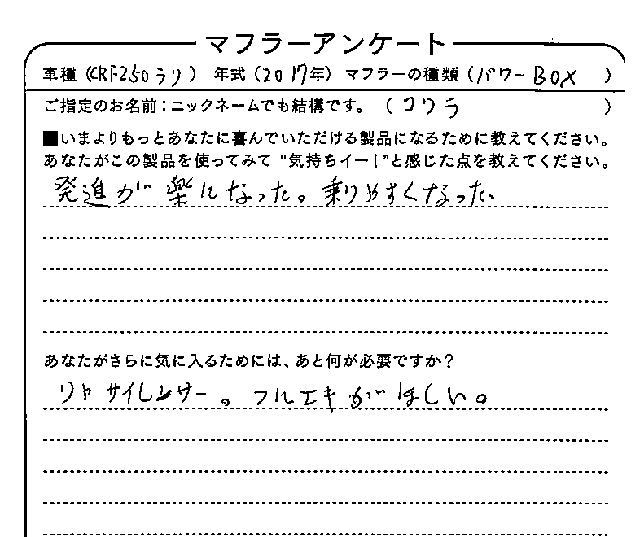 マフラーアンケート
車種（CRF250ラリ） 年式（2017年）マフラーの種類（パワーBOX ）
ご指定のお名前：ニックネームでも結構です。（コワラ ）
■いまよりもっとあなたに喜んでいただける製品になるために教えてください。
あなたがこの製品を使ってみて“気持ちイー！”と感じた点を教えてください。
発進が楽になった。乗りやすくなった
あなたがさらに気に入るためには、あと何が必要ですか？
サイレンサー。フルエキがほしい。